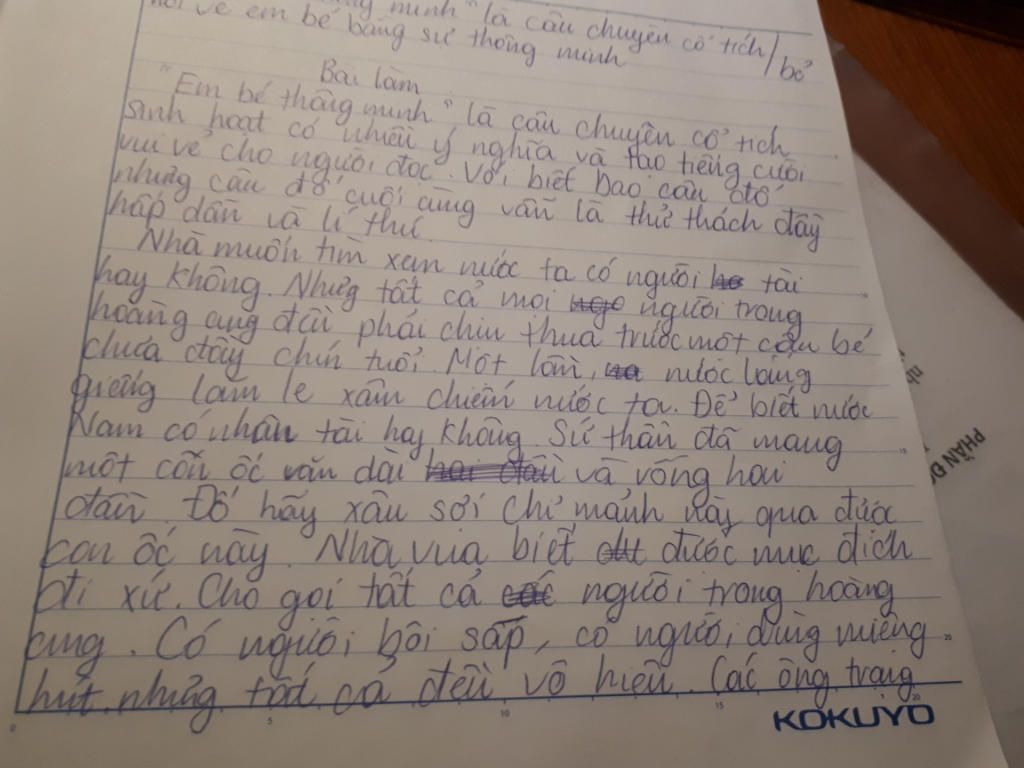 minh" là câu chuyện cổ tích/
nói về em bé bằng sự thông minh bỏ
Bài làm
"Em bé thông minh" là câu chuyện cổ tích
sinh hoạt có nhiều ý nghĩa và tạo tiếng cười
vui vẻ cho người đọc. Với biết bao câu đố
nhưng câu đố cuối cùng vẫn là thử thách đầy
hấp dẫn và lí thú.
Nhà muốn tìm xem nước ta có người tài
hay không. Nhưg tất cả mọi người trong
hoàng cung đều phải chịu thua trước một cậu bé
chưa đầy chín tuổi. Một lần, nước láng
giềng lăm le xâm chiếm nước ta. Để biết nước
Nam có nhân tài hay không. Sứ thần đã mang
một con ốc vặn dài và rỗng hai
đầu. Đố hãy xâu sợi chỉ mảnh này qua được
con ốc này. Nhà vua biết được mục đích
đi xứ. Cho gọi tất cả người trong hoàng
cung. Có người bôi sáp, có người dùng miệng
hút nhưng tất cả đều vô hiệu. Các ông trạng
KOKUYO
PHẦN Đ
0 5 10 15 20